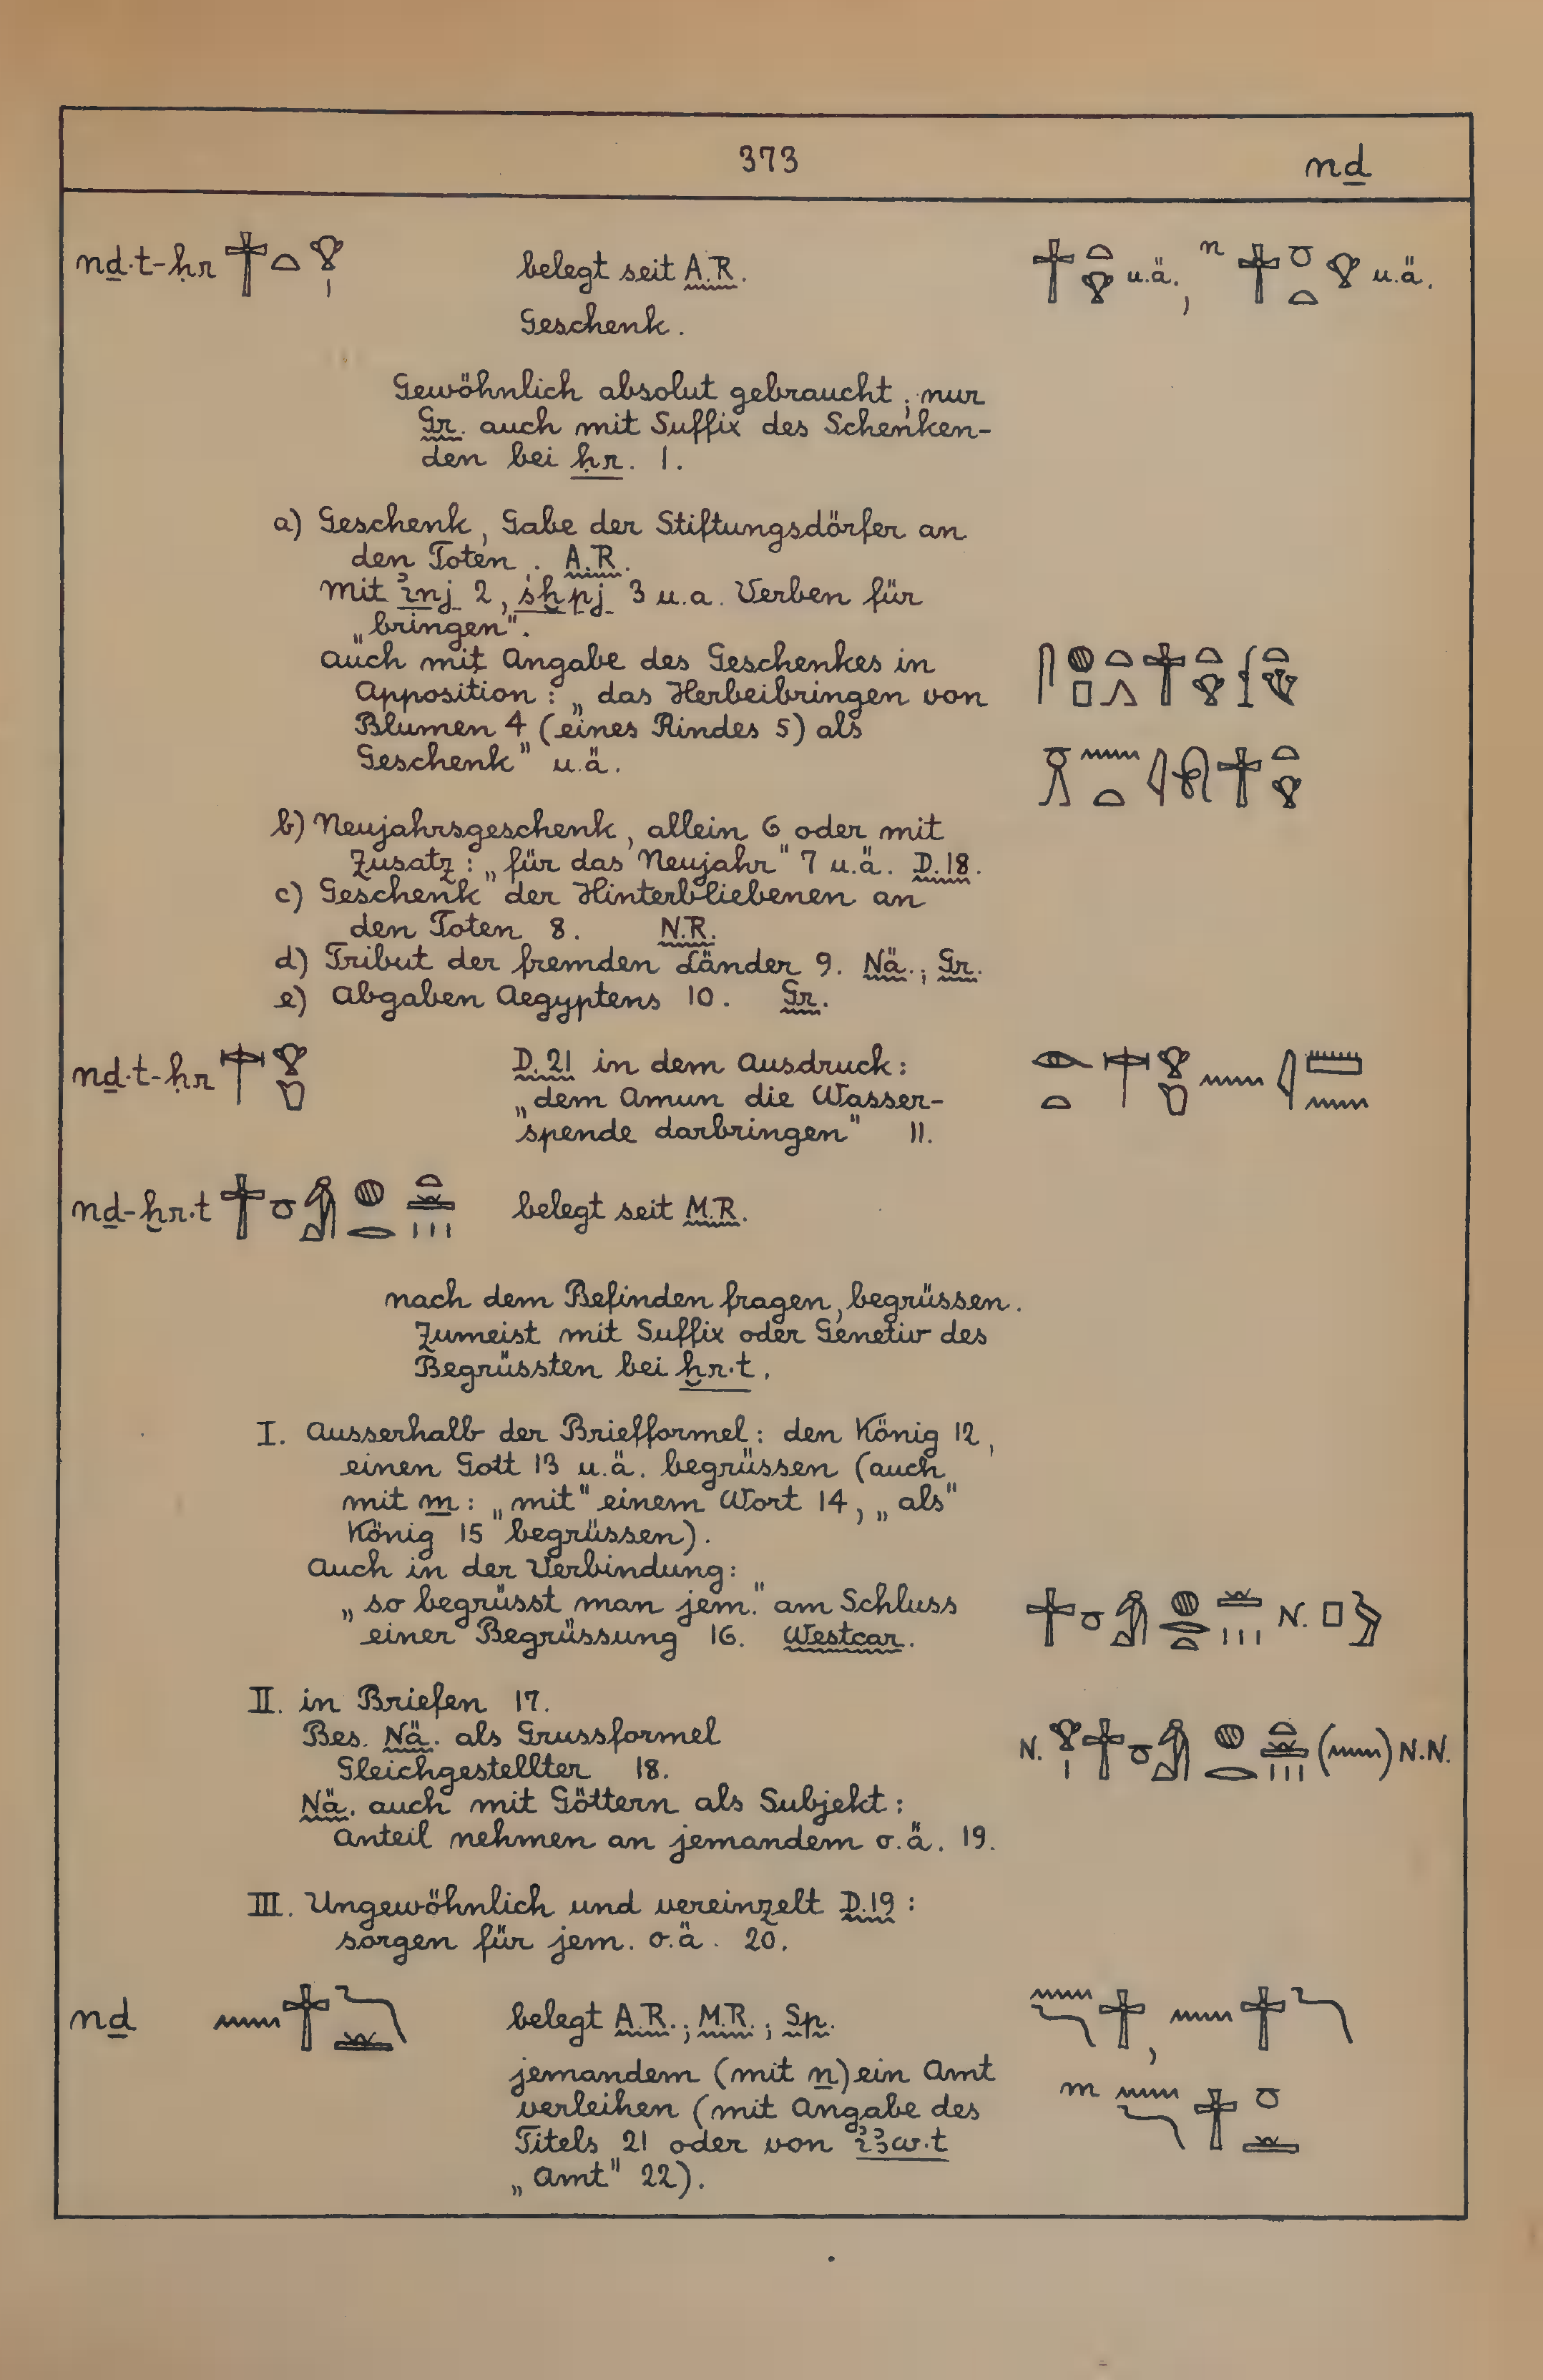 373
nḏ
nḏ·t-ḥr belegt seit A.R. u.ä., n u.ä.
Geschenk.
Gewöhnlich absolut gebraucht; nur
Gr. auch mit Suffix des Schenken-
den bei ḥr. 1.
a) Geschenk, Gabe der Stiftungsdörfer an
den Toten. A.R.
mit ỉnj 2, sḫpj 3 u.a. Verben für
„bringen".
auch mit Angabe des Geschenkes in
Apposition: „das Herbeibringen von
Blumen 4 (eines Rindes 5) als
Geschenk" u.ä.
b) Neujahrsgeschenk, allein 6 oder mit
Zusatz: „für das Neujahr" 7 u.ä. D.18.
c) Geschenk der Hinterbliebenen an
den Toten 8. N.R.
d) Tribut der fremden Länder 9. Nä.; Gr.
e) Abgaben Aegyptens 10. Gr.
nḏ·t-ḥr D.21 in dem Ausdruck:
„dem Amun die Wasser-
spende darbringen" 11.
nḏ-ḫr·t belegt seit M.R.
nach dem Befinden fragen, begrüssen.
Zumeist mit Suffix oder Genetiv des
Begrüssten bei ḫr·t.
I. Ausserhalb der Briefformel: den König 12,
einen Gott 13 u.ä. begrüssen (auch
mit m: „mit" einem Wort 14, „als"
König 15 begrüssen).
Auch in der Verbindung:
„so begrüsst man jem." am Schluss N.
einer Begrüssung 16. Westcar.
II. in Briefen 17.
Bes. Nä. als Grussformel N. N.N.
Gleichgestellter 18.
Nä. auch mit Göttern als Subjekt:
Anteil nehmen an jemandem o.ä. 19.
III. Ungewöhnlich und vereinzelt D.19:
sorgen für jem. o.ä. 20.
nḏ belegt A.R.; M.R.; Sp. ,
jemandem (mit n) ein Amt m
verleihen (mit Angabe des
Titels 21 oder von ỉꜣw·t
„Amt" 22).